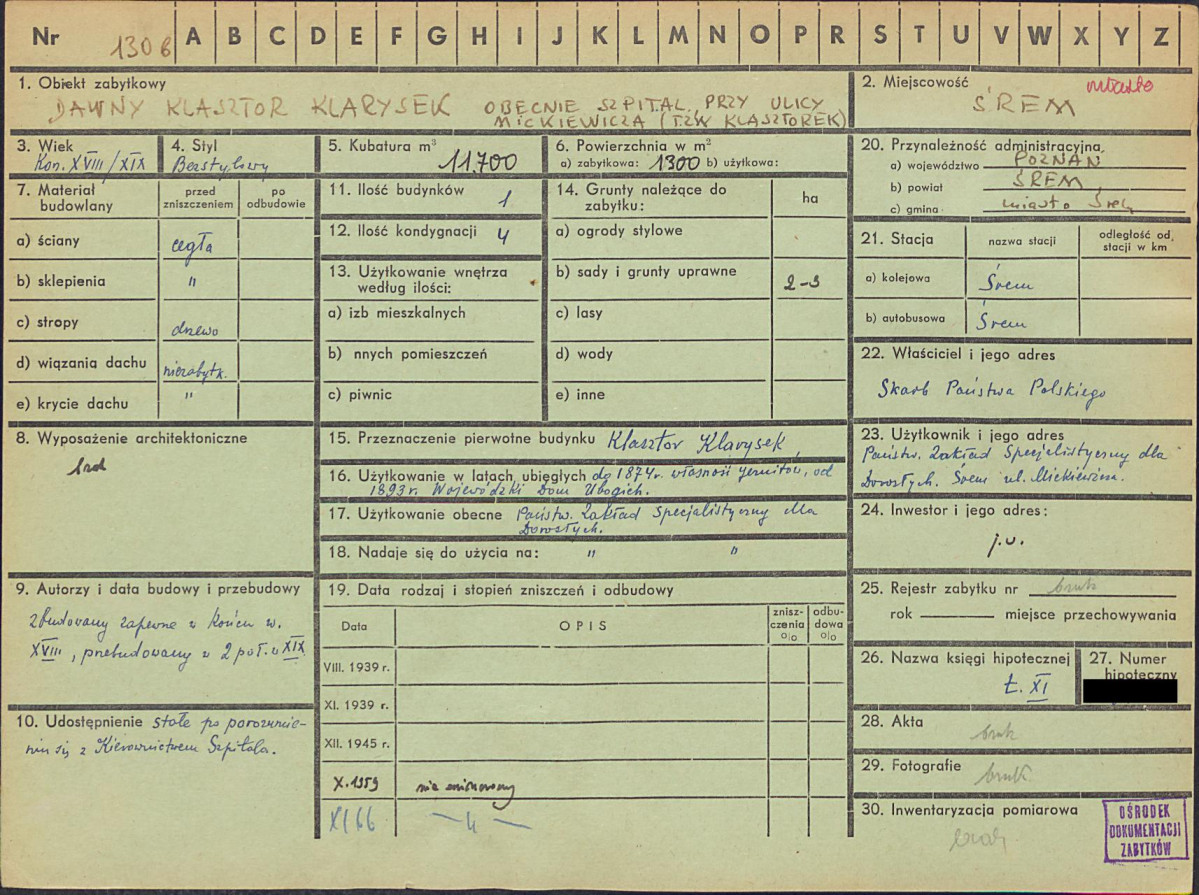 Nr 1306 A B C D E F G H I J K L M N O P R S T U V W X Y Z
1. Obiekt zabytkowy
DAWNY KLASZTOR KLARYSEK OBECNIE SZPITAL, PRZY ULICY
MICKIEWICZA (TZW KLASZTOREK)
2. Miejscowość miasto
ŚREM
3. Wiek
Kon. XVIII/XIX
4. Styl
Bezstylowy
5. Kubatura m³
11.700
6. Powierzchnia w m²
a) zabytkowa: 1300 b) użytkowa:
7. Materiał
budowlany
przed
zniszczeniem
po
odbudowie
a) ściany cegła
b) sklepienia "
c) stropy drzewo
d) wiązania dachu niezabytk.
e) krycie dachu "
8. Wyposażenie architektoniczne
brak
9. Autorzy i data budowy i przebudowy
zbudowany zapewne w końcu w.
XVIII, przebudowany w 2 poł. w XIX
10. Udostępnienie stałe po porozumie-
niu się z Kierownictwem Szpitala.
11. Ilość budynków 1
12. Ilość kondygnacji 4
13. Użytkowanie wnętrza
według ilości:
a) izb mieszkalnych
b) nnych pomieszczeń
c) piwnic
14. Grunty należące do
zabytku:
ha
a) ogrody stylowe
b) sady i grunty uprawne 2-3
c) lasy
d) wody
e) inne
15. Przeznaczenie pierwotne budynku Klasztor Klarysek
16. Użytkowanie w latach ubiegłych do 1874r. własność jezuitów, od
1893r. Wojewódzki Dom Ubogich.
17. Użytkowanie obecne Państw. Zakład Specjalistyczny dla
Dorosłych.
18. Nadaje się do użycia na: " "
19. Data rodzaj i stopień zniszczeń i odbudowy
Data
OPIS
znisz-
czenia
o/o
odbu-
dowa
o/o
VIII. 1939 r.
XI. 1939 r.
XII. 1945 r.
X.1959 nie zniszczony
XI 66 — " —
20. Przynależność administracyjna
a) województwo POZNAŃ
b) powiat ŚREM
c) gmina miasto Śrem
21. Stacja
nazwa stacji
odległość od
stacji w km
a) kolejowa Śrem
b) autobusowa Śrem
22. Właściciel i jego adres
Skarb Państwa Polskiego
23. Użytkownik i jego adres
Państw. Zakład Specjalistyczny dla
Dorosłych. Śrem ul. Mickiewicza.
24. Inwestor i jego adres:
j.w.
25. Rejestr zabytku nr brak
rok miejsce przechowywania
26. Nazwa księgi hipotecznej
t. XI
27. Numer
hipoteczny
28. Akta
brak
29. Fotografie
brak
30. Inwentaryzacja pomiarowa
brak
OŚRODEK
DOKUMENTACJI
ZABYTKÓW